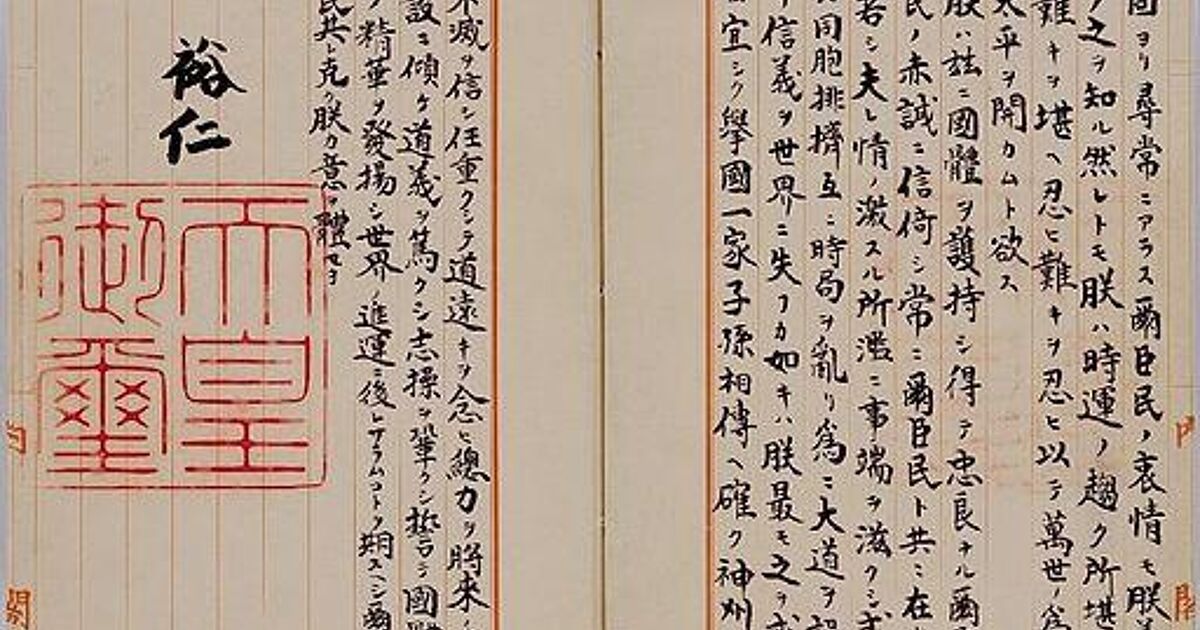 固ヨリ尋常ニアラス爾臣民ノ衷情モ朕
之ヲ知ル然レトモ朕ハ時運ノ趨ク所堪
難キヲ堪ヘ忍ヒ難キヲ忍ヒ以テ萬世ノ爲
太平ヲ開カムト欲ス
朕ハ茲ニ國體ヲ護持シ得テ忠良ナル爾
民ノ赤誠ニ信倚シ常ニ爾臣民ト共ニ在
若シ夫レ情ノ激スル所濫ニ事端ヲ滋クシ
同胞排擠互ニ時局ヲ亂リ爲ニ大道ヲ
信義ヲ世界ニ失フカ如キハ朕最モ之ヲ
宜シク擧國一家子孫相傳ヘ確ク神州
不滅ヲ信シ任重クシテ道遠キヲ念ヒ總力ヲ將來ノ
設ニ傾ケ道義ヲ篤クシ志操ヲ鞏クシ誓テ國體
精華ヲ發揚シ世界ノ進運ニ後レサラムコトヲ期スヘシ爾
民其レ克ク朕カ意ヲ體セヨ
裕仁
天皇
御璽
内
閣
内
閣